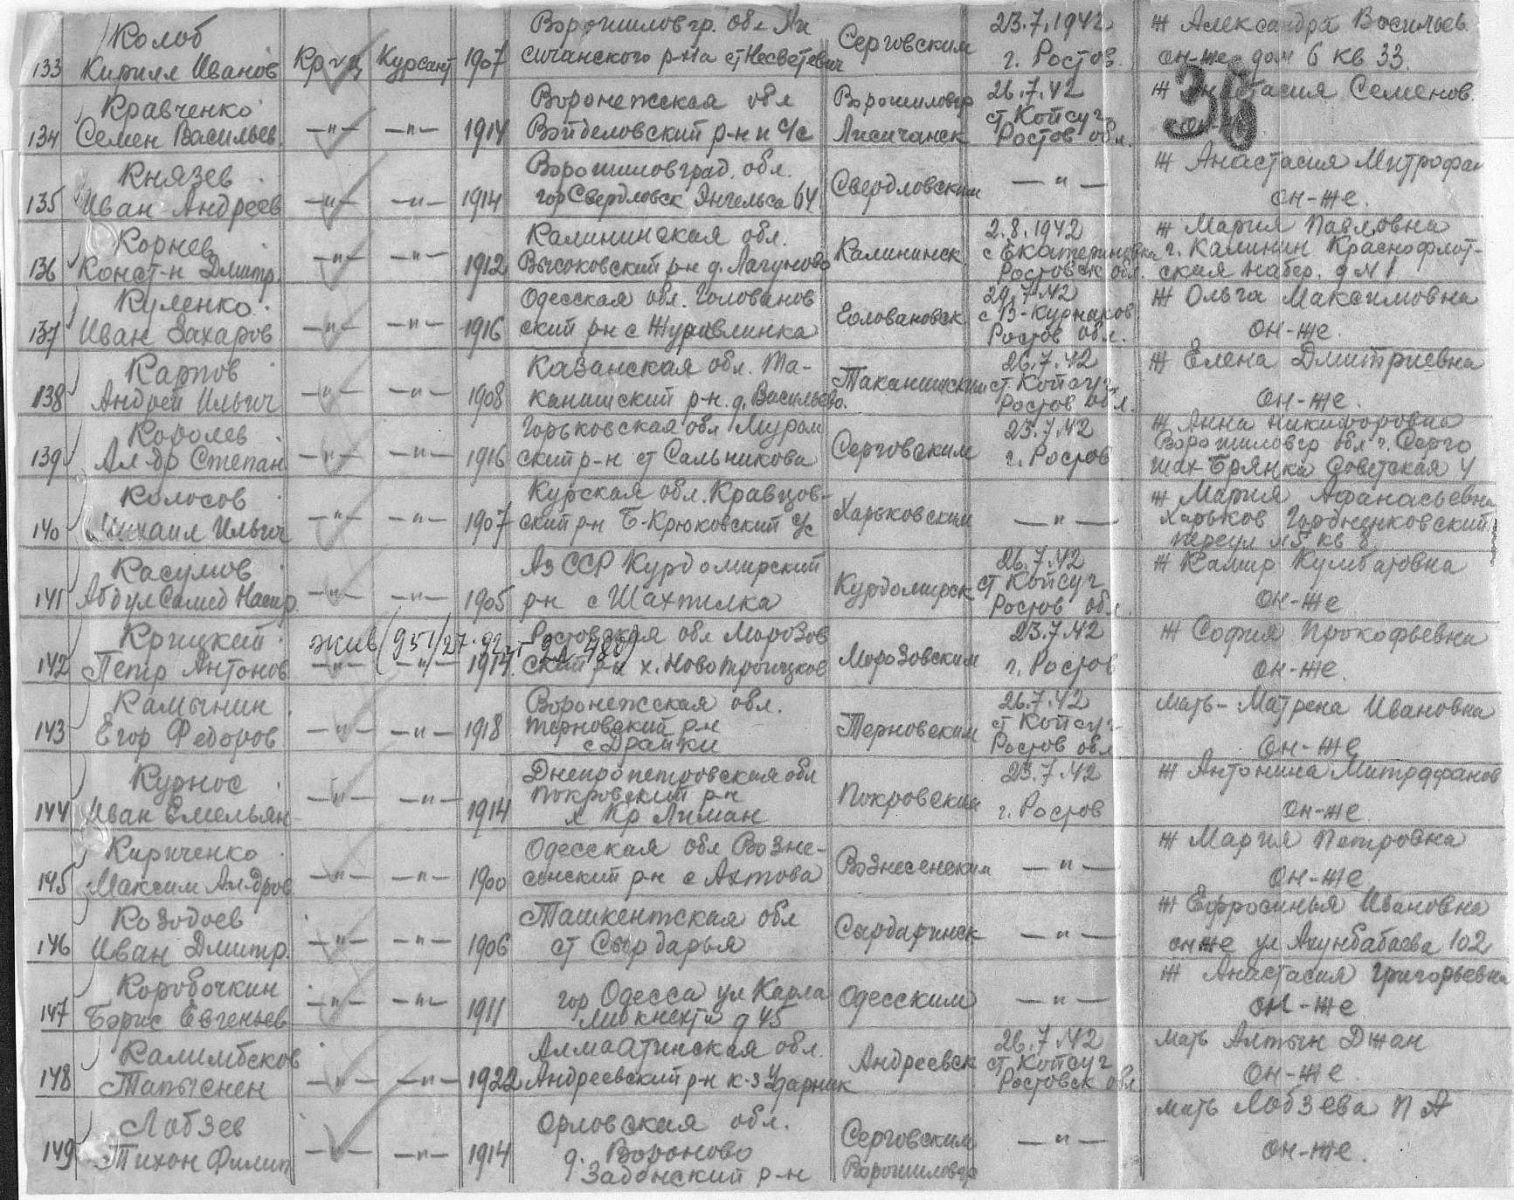 133 Колоб Кирилл Иванов Кр-ц Курсант 1907 Ворошиловгр. обл Ли
сичанского р-на ст Несветевич Серговским 23.7.1942 г. Ростов. Ж Александра Васильев. он-же дом 6 кв 33.
36
134 Кравченко Семен Васильев. —"— —"— 1914 Воронежская обл
р-н и с/с Ворошиловгр Лисичанск 26.7.42 ст Койсуг Ростов обл. Ж Анастасия Семенов.
135 Князев Иван Андреев —"— —"— 1914 Ворошиловград. обл.
гор Свердловск Энгельса 64 Свердловским —"— Ж Анастасия Митрофан он-же.
136 Корнев Конст-н Дмитр. —"— —"— 1912 Калининская обл.
Высоковский р-н д. Лагуново Калининск 2.8.1942 с Екатериновка Ростовск обл. Ж Мария Павловна
г. Калинин Краснофлот-
ская набер. д № 1
137 Куленко Иван Захаров —"— —"— 1916 Одесская обл. Голованов
ский р-н с Журавлинка Головановск 29.7.42 Ростов обл. Ж Ольга Максимовна он-же.
138 Карпов Андрей Ильич —"— —"— 1908 Казанская обл. Та-
канишский р-н. д. Васильево. Таканишским 26.7.42 ст Койсуг Ростов обл. Ж Елена Дмитриевна он-же.
139 Королев Ал-др Степан —"— —"— 1916 Горьковская обл Муром
ский р-н ст Сальникова Серговским 23.7.42 г. Ростов Ж Анна Никифоровна
Ворошиловгр обл г. Серго
шах Брянка Советская 4
140 Колосов Михаил Ильич —"— —"— 1907 Курская обл. Кравцов-
ский р-н Б-Крюковский с/с Харьковским —"— Ж Мария Афанасьевна
Харьков
переул №5 кв 8.
141 Касумов Абдул Самед Насир. —"— —"— 1905 Аз ССР Курдомирский
р-н с Шахтилка Курдомирск 26.7.42 ст Койсуг Ростов обл. Ж Камир Кумбатовна он-же
142 Крицкий Петр Антонов жив (951/27.92 —"— —"— 1914. Ростовская обл Морозов
ский р-н х. Новотроицкое Морозовским 23.7.42 г. Ростов Ж София Прокофьевна он-же.
143 Камынин Егор Федоров —"— —"— 1918 Воронежская обл.
Терновский р-н
с Драйки Терновским 26.7.42 ст Койсуг Ростов обл Мать- Матрена Ивановна он-же
144 Курнос Иван Емельян —"— —"— 1914 Днепропетровская обл
Покровский р-н
х Кр Лиман Покровским 23.7.42 г. Ростов Ж Антонина Митроффанов он-же.
145 Кириченко Максим Ал-дров —"— —"— 1900 Одесская обл Возне-
сенский р-н с Актова Вознесенским —"— Ж Мария Петровна он-же
146 Козодоев Иван Дмитр. —"— —"— 1906 Ташкентская обл
ст Сырдарья Сырдаринск —"— Ж Ефросинья Ивановна он же ул Ахунбабаева 102
147 Коробочкин Борис Евгеньев —"— —"— 1911 гор Одесса ул Карла
Либкнехта д 45 Одесским —"— Ж Анастасия Григорьевна он-же
148 Калимбеков —"— —"— 1922 Алмаатинская обл.
Андреевский р-н к-з Ударник Андреевск 26.7.42 ст Койсуг Ростовск обл мать Алтын Джан он-же.
149 Лобзев Тихон Филип —"— —"— 1914 Орловская обл.
д. Вороново
Задонский р-н Серговским Ворошиловгр —"— мать Лобзева П А он-же.